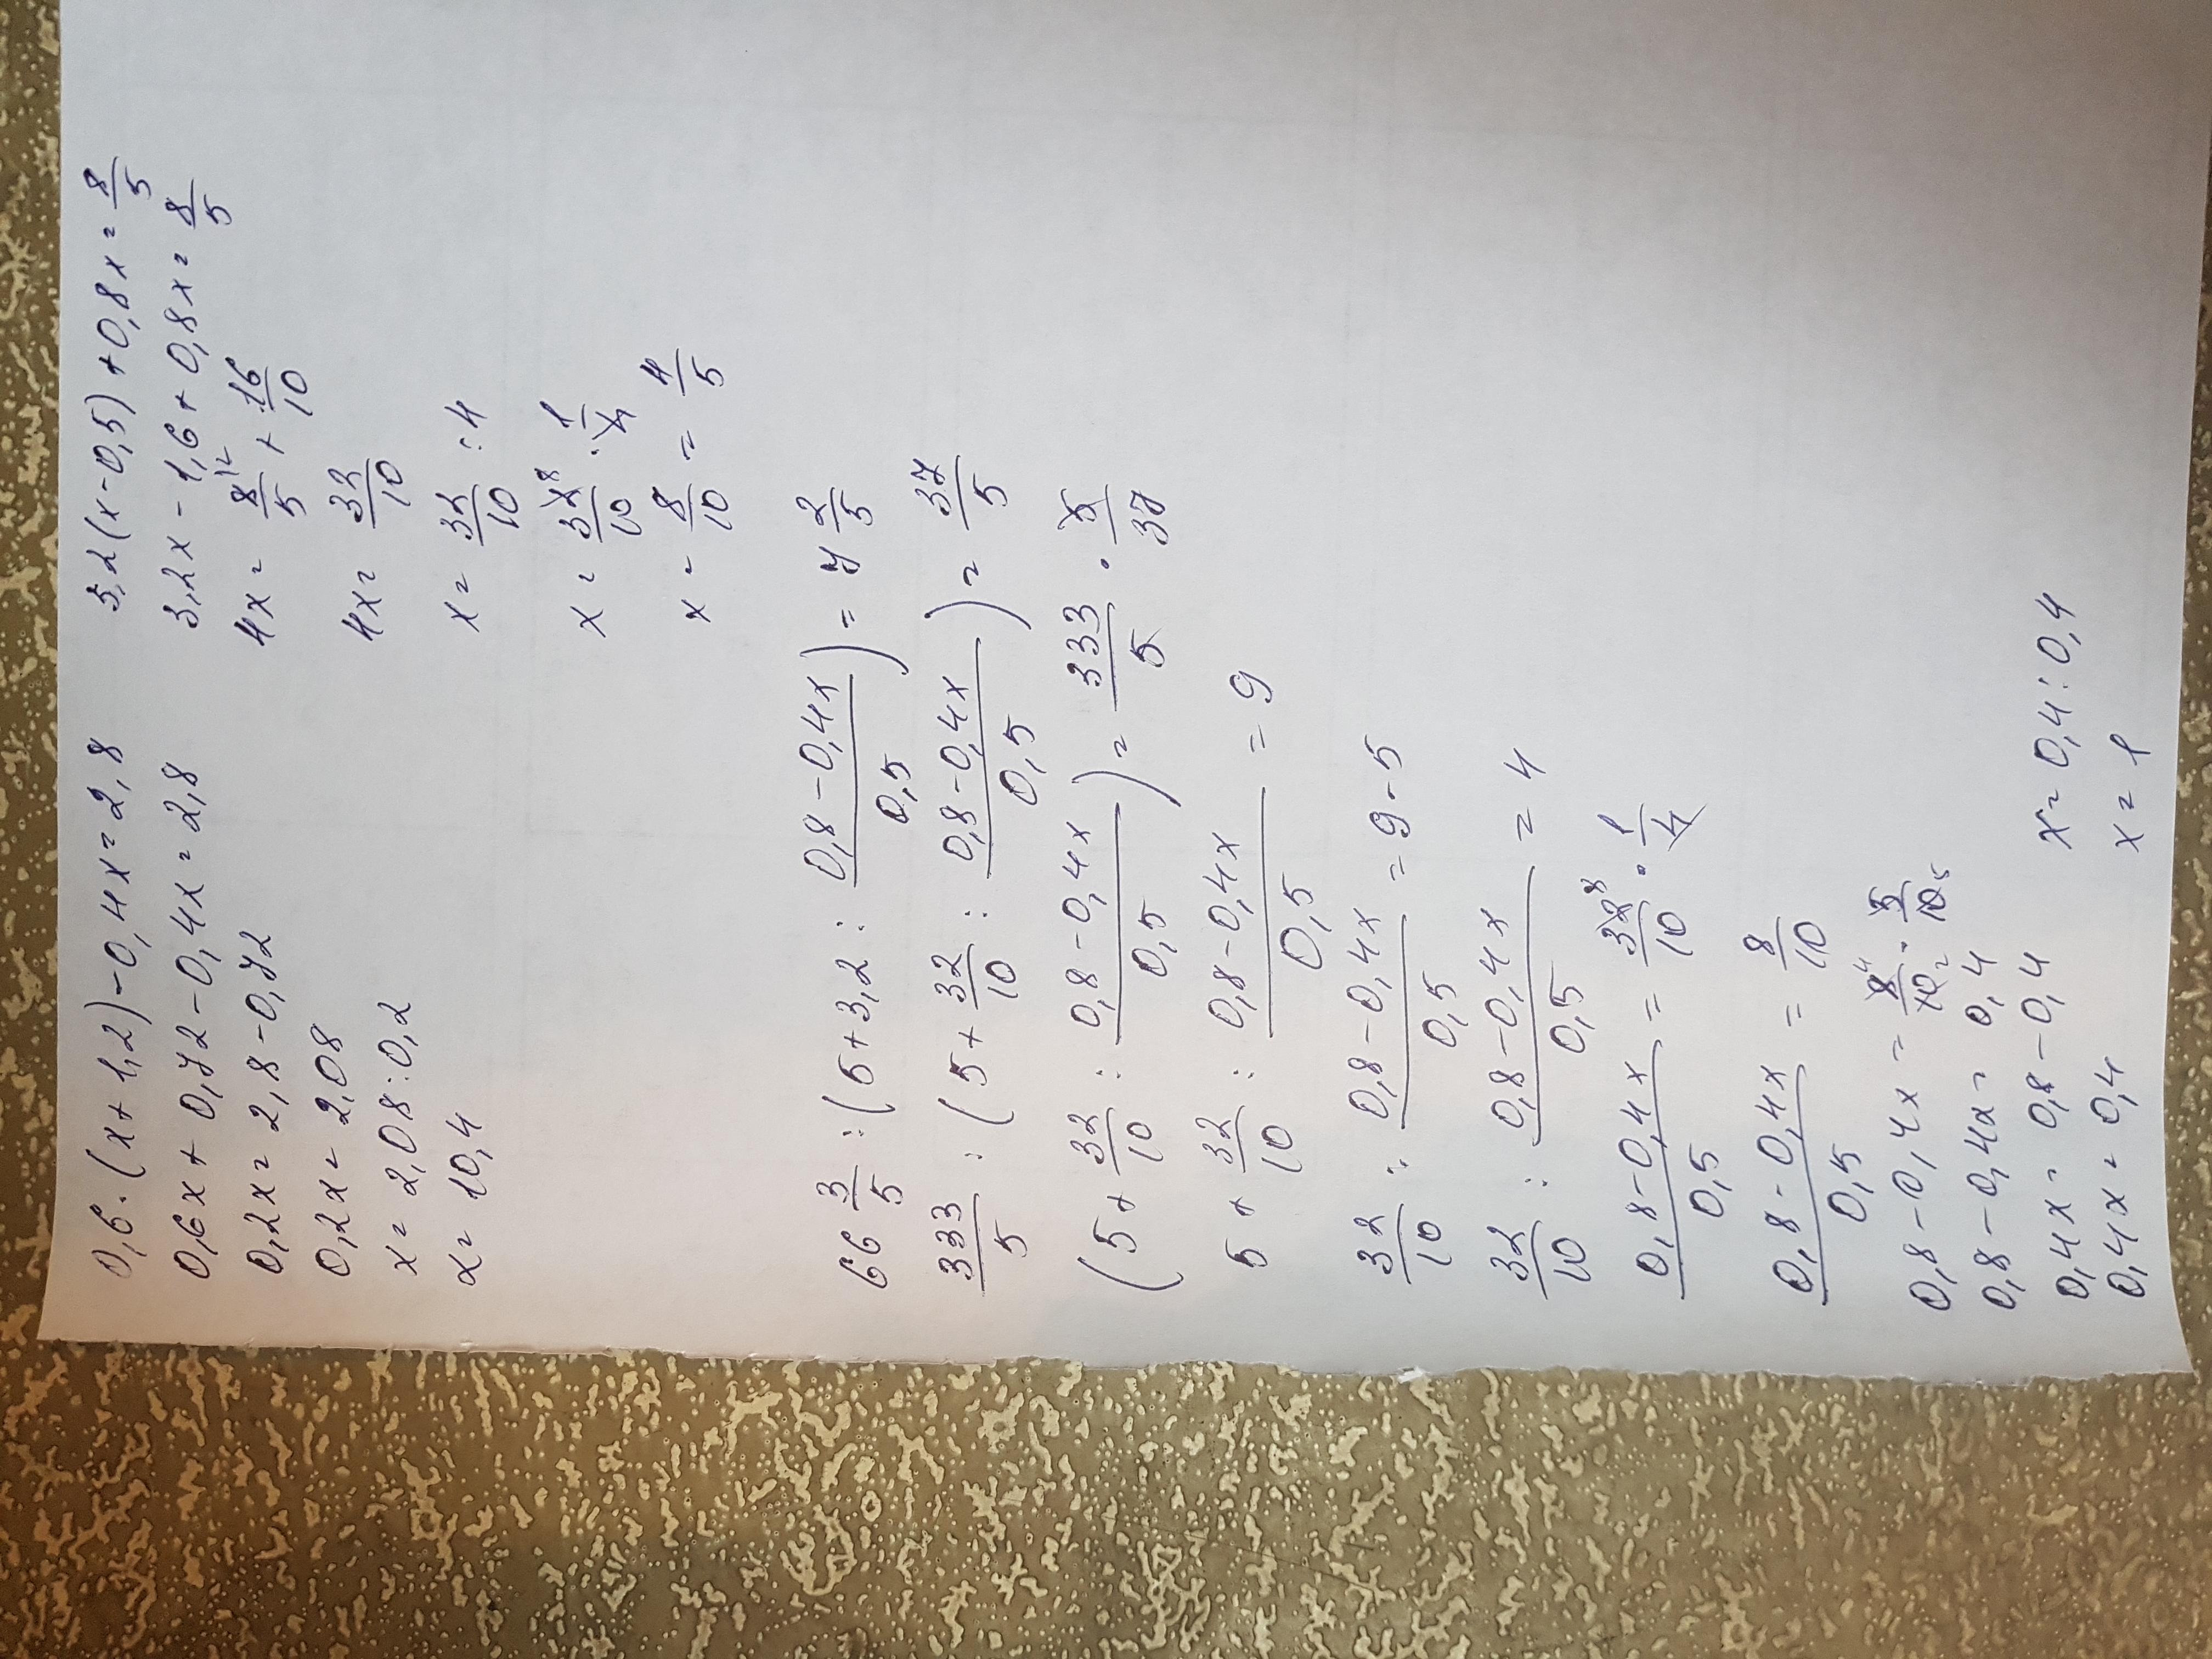 0,6·(x+1,2)-0,4x=2,8
0,6x+0,72-0,4x=2,8
0,2x=2,8-0,72
0,2x=2,08
x=2,08:0,2
x=10,4
3,2(x-0,5)+0,8x=8/5
3,2x-1,6+0,8x=8/5
4x=8/5\2+16/10
4x=32/10
x=32/10:4
x=32 8/10·1/4
x=8/10=4/5
66 3/5:(5+3,2:(0,8-0,4x)/0,5)=7 2/5
333/5:(5+32/10:(0,8-0,4x)/0,5)=37/5
(5+32/10:(0,8-0,4x)/0,5)=333/5·5/37
5+32/10:(0,8-0,4x)/0,5=9
32/10:(0,8-0,4x)/0,5=9-5
32/10:(0,8-0,4x)/0,5=4
(0,8-0,4x)/0,5=32 8/10·1/4
(0,8-0,4x)/0,5=8/10
0,8-0,4x=8 4/10 2·5/10 5
0,8-0,4x=0,4
0,4x=0,8-0,4
0,4x=0,4
x=0,4:0,4
x=1